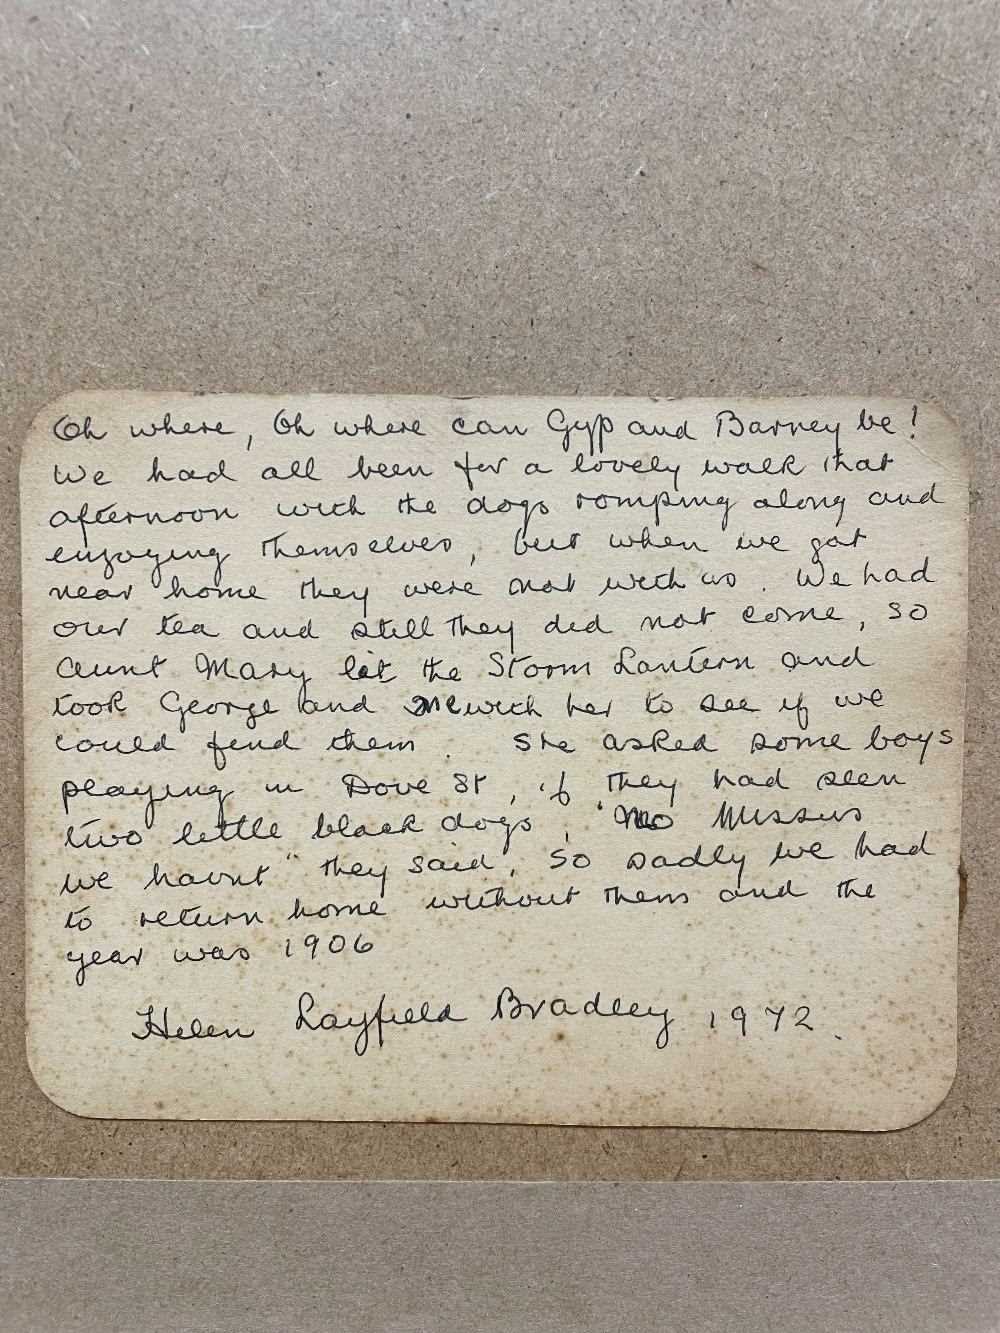 Oh where, Oh where can Gyp and Barney be!
We had all been for a lovely walk that
afternoon with the dogs romping along and
enjoying themselves, but when we got
near home they were not with us. We had
our tea and still they did not come, so
Aunt Mary lit the Storm Lantern and
took George and me with her to see if we
could find them. She asked some boys
playing in Dove St, if they had seen
two little black dogs, "No Missus
we havnt" they said, So sadly we had
to return home without them and the
year was 1906
Helen Layfield Bradley 1972.